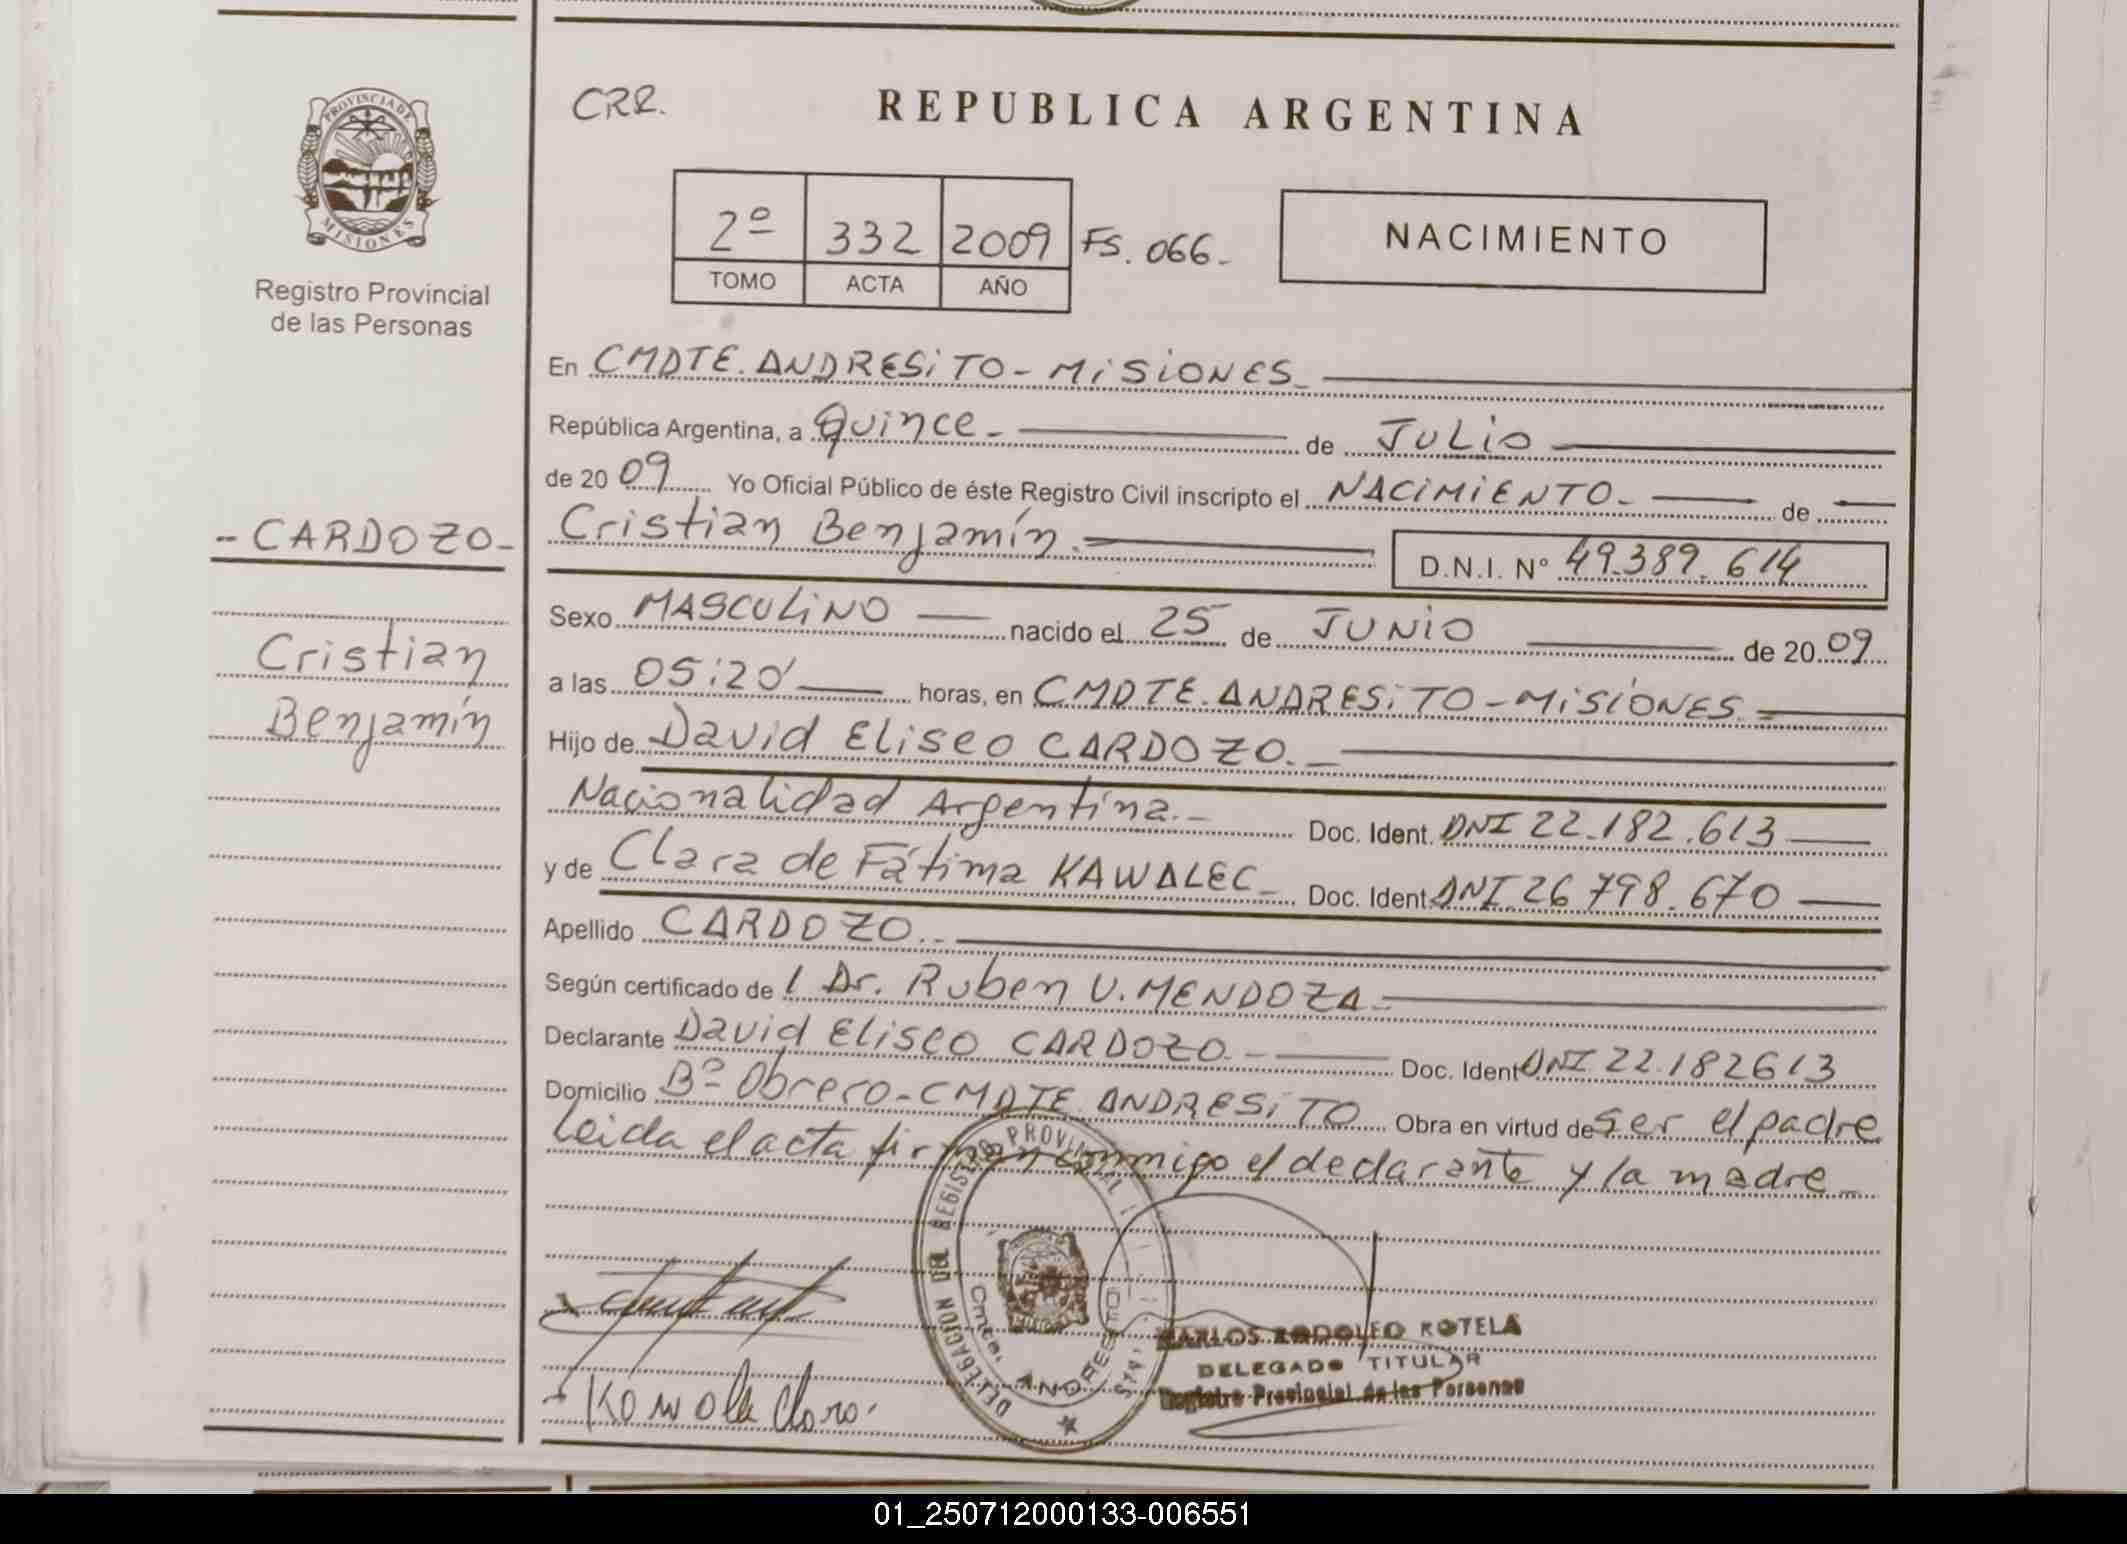 PROVINCIA DE
MISIONES
Registro Provincial
de las Personas
- CARDOZO -
Cristian
Benjamín
CRR.
REPUBLICA ARGENTINA
2º 332 2009 FS. 066.-
TOMO ACTA AÑO
NACIMIENTO
En CMDTE. ANDRESiTO - MiSiONES.
República Argentina, a Quince - de JULiO
de 20 09 Yo Oficial Público de éste Registro Civil inscripto el NACiMiENTO - de
Cristian Benjamín. D.N.I. Nº 49.389.614
Sexo MASCULiNO nacido el 25 de JUNiO de 20 09
a las 05:20' horas, en CMDTE. ANDRESiTO - MiSiONES.
Hijo de David Eliseo CARDOZO. -
Nacionalidad Argentina.- Doc. Ident. DNI 22.182.613
y de Clara de Fátima KAWALEC - Doc. Ident. DNI. 26.798.670
Apellido CARDOZO.-
Según certificado de l Dr. Ruben U. MENDOZA -
Declarante David Eliseo CARDOZO.- Doc. Ident DNI 22.182613
Domicilio Bº Obrero - CMDTE. ANDRESiTO Obra en virtud de ser el padre
Leida el acta firman conmigo el declarante y la madre -
DELEGACION DEL REGISTRO PROVINCIAL
Cmte. ANDRESITO
Kowale Claro.
CARLOS RODOLFO ROTELA
DELEGADO TITULAR
Registro Provincial de las Personas
01_250712000133-006551